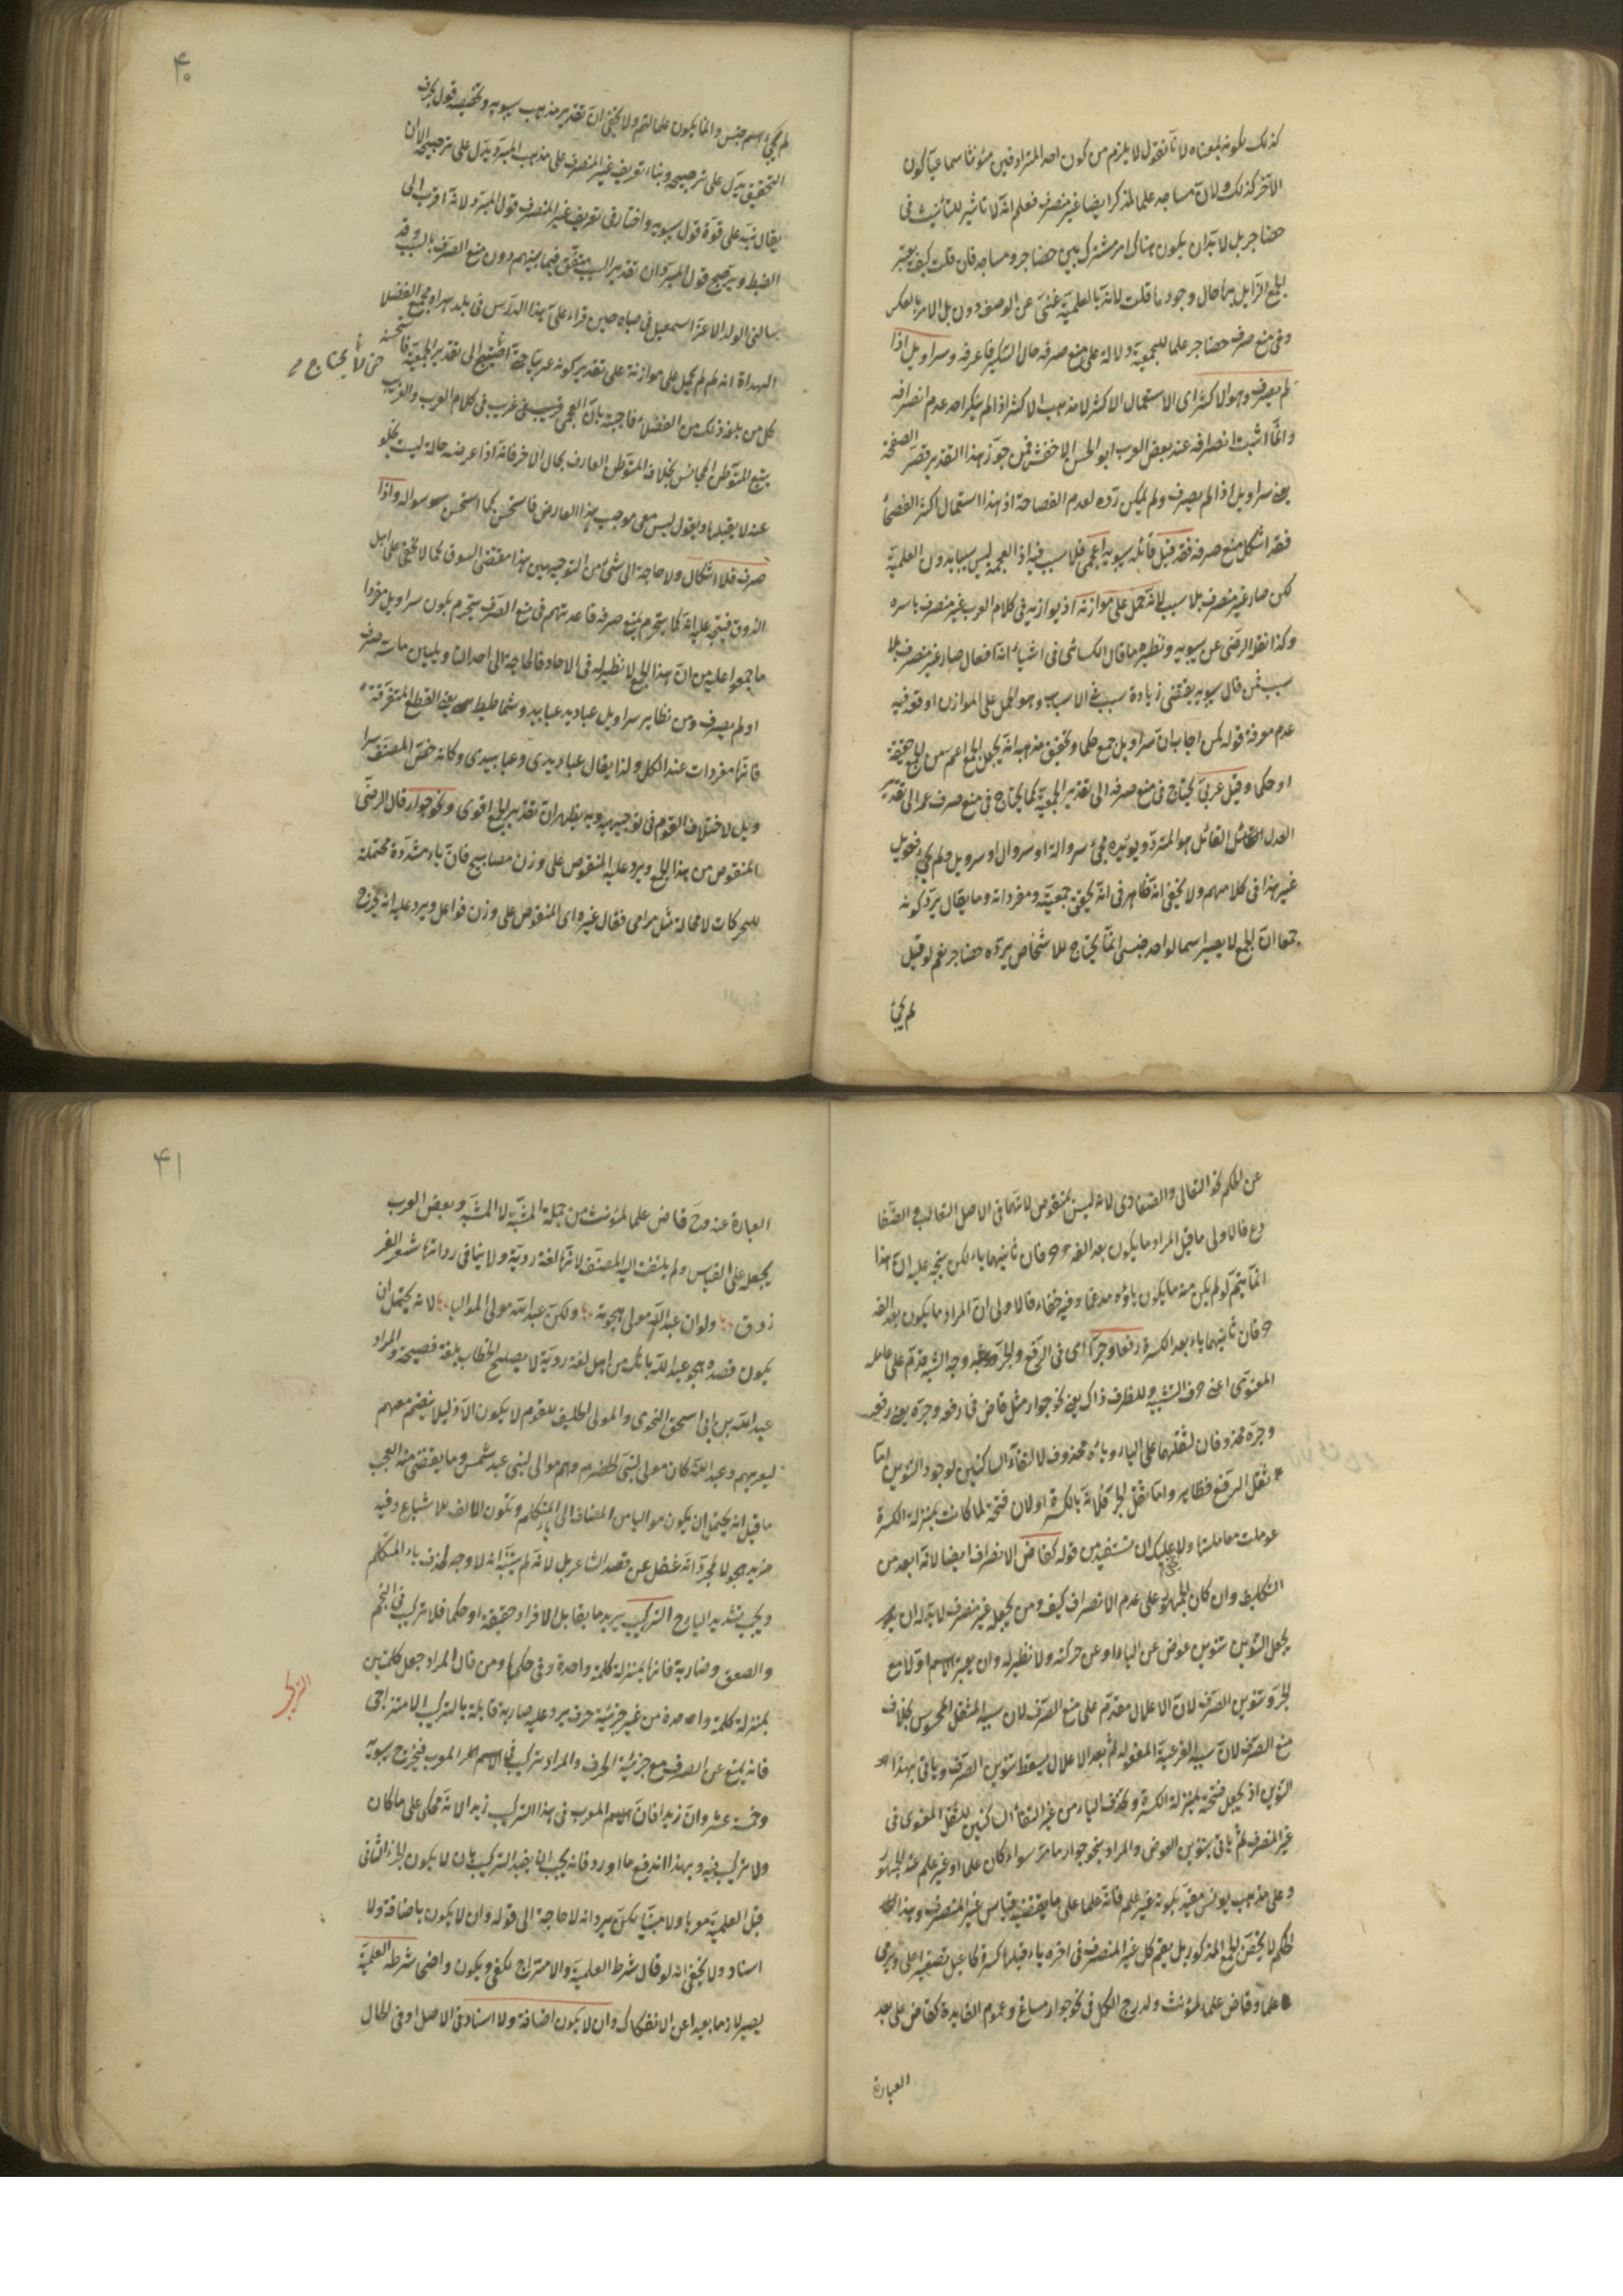 كذلك بكونه بمعناه لانا نقول لا يلزم من كون احد المترادفين مؤنثا سماعيا كون
الآخر كذلك ولان مساجد علما لمذكر ايضا غير منصرف فعلم انه لا تاثير للتأنيث فى
حضاجر بل لا بد ان يكون هناك امر مشترك بين حضاجر ومساجد فان قلت كيف يعتبر
الجمع الزايل حال وجود ما قلت لانه بالعلمية غنى عن الوصف دون بل الامر بالعكس
وفى منع صرف حضاجر علما للجمعية دلالة على منع صرفه حال التنكير فاعرفه وسراويل اذا
لم يصرف وهو الاكثر اى الاستعمال الاكثر لا مذهب الاكثر اذ لم ينكر احد عدم انصرافه
وانما اثبت انصرافه عند بعض العرب ابو الحسن الاخفش فمن جوز هذا التقدير قصر الصفحة
يعنى سراويل اذا لم يصرف ولم يمكن رده لعدم الفصاحة اذ هذا استعمال اكثر الفصحاء
فقد اشكل منع صرفه فقد قيل قائله سيبويه اعجمى فلا سبب فيه اذ العجمة ليس سببا بدون العلمية
لكن صار غير منصرف بلا سبب لانه حمل على موازنه اذ يوازنه فى كلام العرب غير منصرف باسره
وكذا نقله الرضى عن سيبويه ونظيره ما قال الكسائى فى اشياء انه افعال صار غير منصرف بلا
سبب فمن قال سيبويه يقتضى زيادة سبب فى الاسباب وهو الحمل على الموازن اوقعه فيه
عدم معرفة قوله لمن اجاب ان سراويل جمع حكما وتحقيق مذهبه انه يجعل الجمع اعم من الجمع حقيقة
او حكما وقيل عربى يحتاج فى منع صرفه الى تقدير الجمعية كما يحتاج فى منع صرف عمر الى تقدير
العدل القائل هو المبرد ويؤيده مجئ سروالة او سروال او سرويل ولم يجئ فعويل
غير هذا فى كلامهم ولا يخفى انه ظاهر فى انه تحقيق جمعيته ومفرداته وما يقال يرد كونه
جمعا ان الجمع لا يصير اسما لواحد جنسى انما يحتاج للاشخاص يرده حضاجر نعم لو قيل
لم يجئ
۴۰
لم يجئ اسم جنس وانما يكون علما لتم ولا يخفى ان تقدير مذهب سيبويه وتخصيصه قول بحرف
التحقيق يدل على ترجيحه وبناء تعريف غير المنصرف على مذهب المبرد يدل على ترجيحه الا ان
يقال نبه على قوة قول سيبويه واختار فى تعريف غير المنصرف قول المبرد لانه اقرب الى
الضبط ويرجح قول المبرد ان تقدير السبب متفق فيما بينهم دون منع الصرف بالسبب وقد
سالنى الولد الاعز اسمعيل فى صباه حين قراء على هذا الدرس فى بلد هراه مجمع الفضلا
الهداة انه لم لم يحمل على موازنه على تقدير كونه عربيا حتى احتيج الى تقدير الجمعية فاستحسنه
حتى لا يحتاج
كل من بلغه ذلك من الفضلاء فاجبته بان العجمى غريب فى كلام العرب والغريب
يتبع المتوطن المجانس بخلاف المتوطن العارف بحال الاخر فانه اذا عرضه حالة ليست بنحو
عنه لا يقبلها ويقول ليس معى موجب هذا العارض فاستحسن كما استحسن سواله واذا
صرف فلا اشكال ولا حاجة الى شئ من التوجيهين هذا مقتضى السوق كما لا يخفى على اهل
الذوق فيتجه عليه انه كما ينخرم بمنع صرفه قاعدتهم فى منع الصرف ينخرم بكون سراويل مفردا
ما اجمعوا عليه من ان هذا الجمع لا نظير له فى الاحاد فالحاجة الى احد التاويلين ماسة صرف
او لم يصرف ومن نظاير سراويل عباديد عبابيد وشماطيط يعنى القطع المتفرقة
فانها مفردات عند الكل ولذا يقال عباديدى وعبابيدى وكانه خص المصنف سرا
ويل لاختلاف القوم فى توجيهيه وبه يظهر ان تقدير الجمع اقوى ونحو جوار قال الرضى
المنقوص من هذا الجمع ويرد عليه المنقوص على وزن مصابيح فان ياء مشددة محتملة
للحركات لا محالة مثل مرامى فقال غيره اى المنقوص على وزن فواعل ويرد عليه انه يخرج
عن الحكم نحو الثعالى والضفادى لانه ليس بمنقوص لانهما فى الاصل الثعالب والضفا
دع فالاولى ما قيل المراد ما يكون بعد الفه حرفان ثانيهما ياء لكن يتجه عليه ان هذا
انما يتم لو لم يكن منه ما يكون ياؤه مدغما وفيه خفاء فالاولى ان المراد ما يكون بعد الفه
حرفان ثانيهما ياء بعد الكسرة رفعا وجرا اى فى الرفع والجر وجه الشبه قدم على عامله
المعنوى اعنى حرف التشبيه وللظرف ذاك يعنى نحو جوار مثل قاض فى رفعه وجره يعنى رفعه
وجره محذوفان لثقلهما على الياء وياؤه محذوف لالتقاء الساكنين لوجود التنوين اما
ثقل الرفع فظاهر واما ثقل الجر فلانه بالكسرة او لان فتحة لما كانت بمنزلة الكسرة
عوملت معاملتها ولا عليك ان تستفيد من قوله كقاض الانصراف ايضا لانه ابعد من
التكلف وان كان الجمهور على عدم الانصراف كيف ومن يجعله غير منصرف لا بد له ان
يجعل التنوين تنوين عوض عن الياء او عن حركته ولا نظير له وان يعتبر الاسم اولا مع
الجر وتنوين الصرف لان الاعلال مقدم على منع الصرف لان سببه الثقل المحسوس بخلاف
منع الصرف لان سببه الفرعية المعقولة ثم بعد الاعلال يسقط تنوين الصرف وياتى بهذا
التنوين اذ يجعل فتحة بمنزلة الكسرة ويحذف الياء من غير التقاء الساكنين للثقل المعنوى فى
غير المنصرف ثم ياتى بتنوين العوض والمراد بنحو جوار ما مر سواء كان علما او غير علم عند الجمهور
وعلى مذهب يونس مقيد بكونه غير علم فانه علما على ما يقتضيه قياس غير المنصرف وهذا
الحكم لا يخص الجمع المذكور بل يعم كل غير المنصرف فى اخره ياء قبلها كسرة كاعيل تصغير اعلى ويرمى
علما وقاض علما لمؤنث ولدرج الكل فى نحو جوار مساغ وعموم الفايدة كقاض على بعد
العبارة
۴۱
العبارة عنه وح قاض علما لمؤنث من جملة المشبه لا المشبه به وبعض العرب
يجعله على القياس ولم يلتفت اليه المصنف لانها لغة ردية ولا ينافى رداتها شعر الفر
زدق ولو ان عبد الله مولى هجوته ولكن عبد الله مولى المواليا لانه يحتمل ان
يكون قصده هجو عبد الله بانك من اهل لغة ردية لا يصلح لخطاب بلغة فصيحة والمراد
عبد الله بن ابى اسحق النحوى والمولى الحليف للقوم لا يكون الا ذليلا ينضم معهم
ليعزبهم وعبد الله كان مولى لبنى الحضرم وهم موالى لبنى عبد شمس وما يقتضى منه العجب
ما قيل انه يحتمل ان يكون مواليا من المضاف الى ياء المتكلم ويكون الالف للاشباع وفيه
مزيد هجو لا لمجرد انه غفل عن قصد الشاعر بل لانه لم يتنبه انه لا وجه لحذف ياء المتكلم
ويجب تشديد الياء ح التركيب يريد ما يقابل الافراد حقيقة او حكما فلا تركيب فى النجم
والصعق وضاربة فانها بمنزلة كلمة واحدة وفى حكمها ومن قال المراد جعل كلمتين
التركيب
بمنزلة كلمة واحدة من غير جزئية حرف يرد عليه ضاربة قابلة بالتركيب الامتزاجى
فانه يمتنع عن الصرف مع جزئية الحرف والمراد تركيب فى الاسم المعرب فيخرج سيبويه
وخمسة عشر وان زيدا فان الاسم المعرب فى هذا التركيب زيد الا انه محكى على ما كان
ولا تركيب فيه وبهذا اندفع ما اورد فانه يجب ان يقيد التركيب بان لا يكون الجزء الثانى
قبل العلمية معربا ولا مبنيا لكن يرد انه لا حاجة الى قوله وان لا يكون باضافة ولا
اسناد ولا يخفى انه لو قال شرط العلمية والامتزاج لكفى ويكون واضحا شرطه العلمية
يصير لازما بعيدا عن الانفكاك وان لا يكون اضافة ولا اسناد فى الاصل او فى الحال